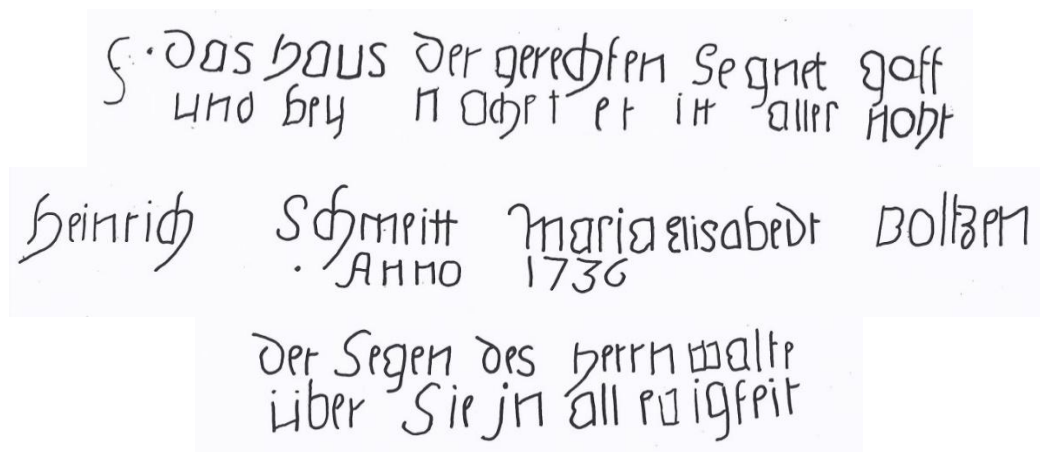 S · Das haus der gerechten Segnet gott
und bey n achet er itt aller noht
heinrich Schmeitt Maria Elisabedt Boltzen
. Anno 1736
Der Segen des herrn walte
über Sie jn all ewigkeit